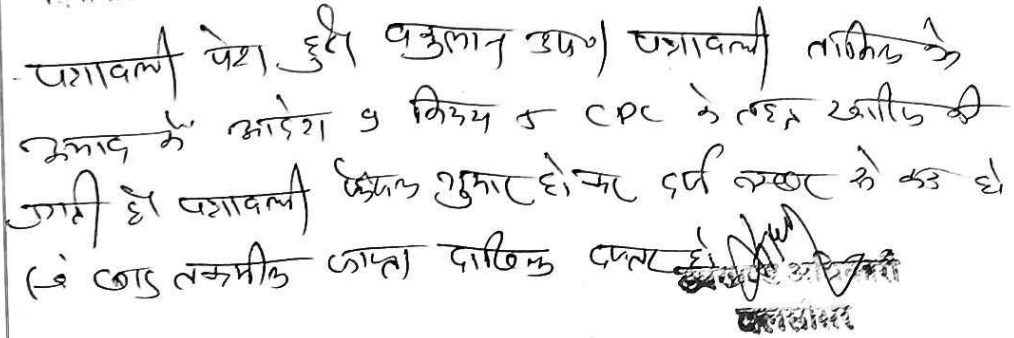 पत्रावली पेश हुई वकुलान उप० पत्रावली तामिल के
अभाव में आदेश 9 नियम 5 CPC के तहत खारीज की
जाती है पत्रावली फैसल शुमार होकर दर्ज नम्बर से कम हो
बाद तकमील जाप्ता दाखिल दफ्तर हो
उपखण्ड अधिकारी